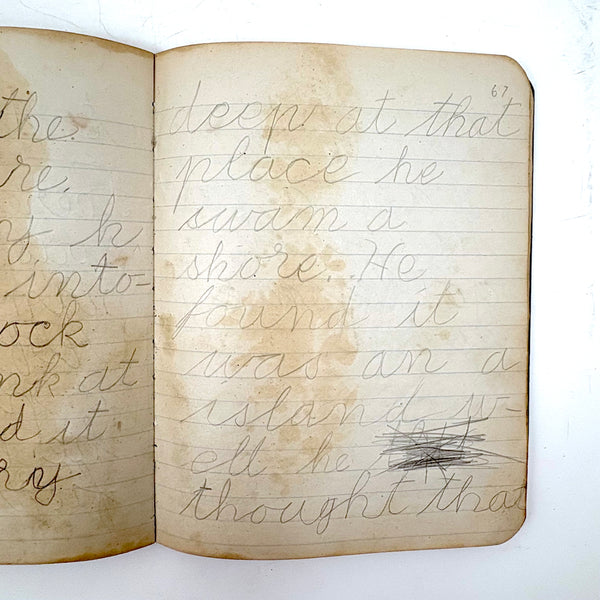 the.
re.
h
into-
ock
nk at
d it
ry
67
deep at that
place he
swam a
shore. He
found it
was an a
island w-
ell he
thought that